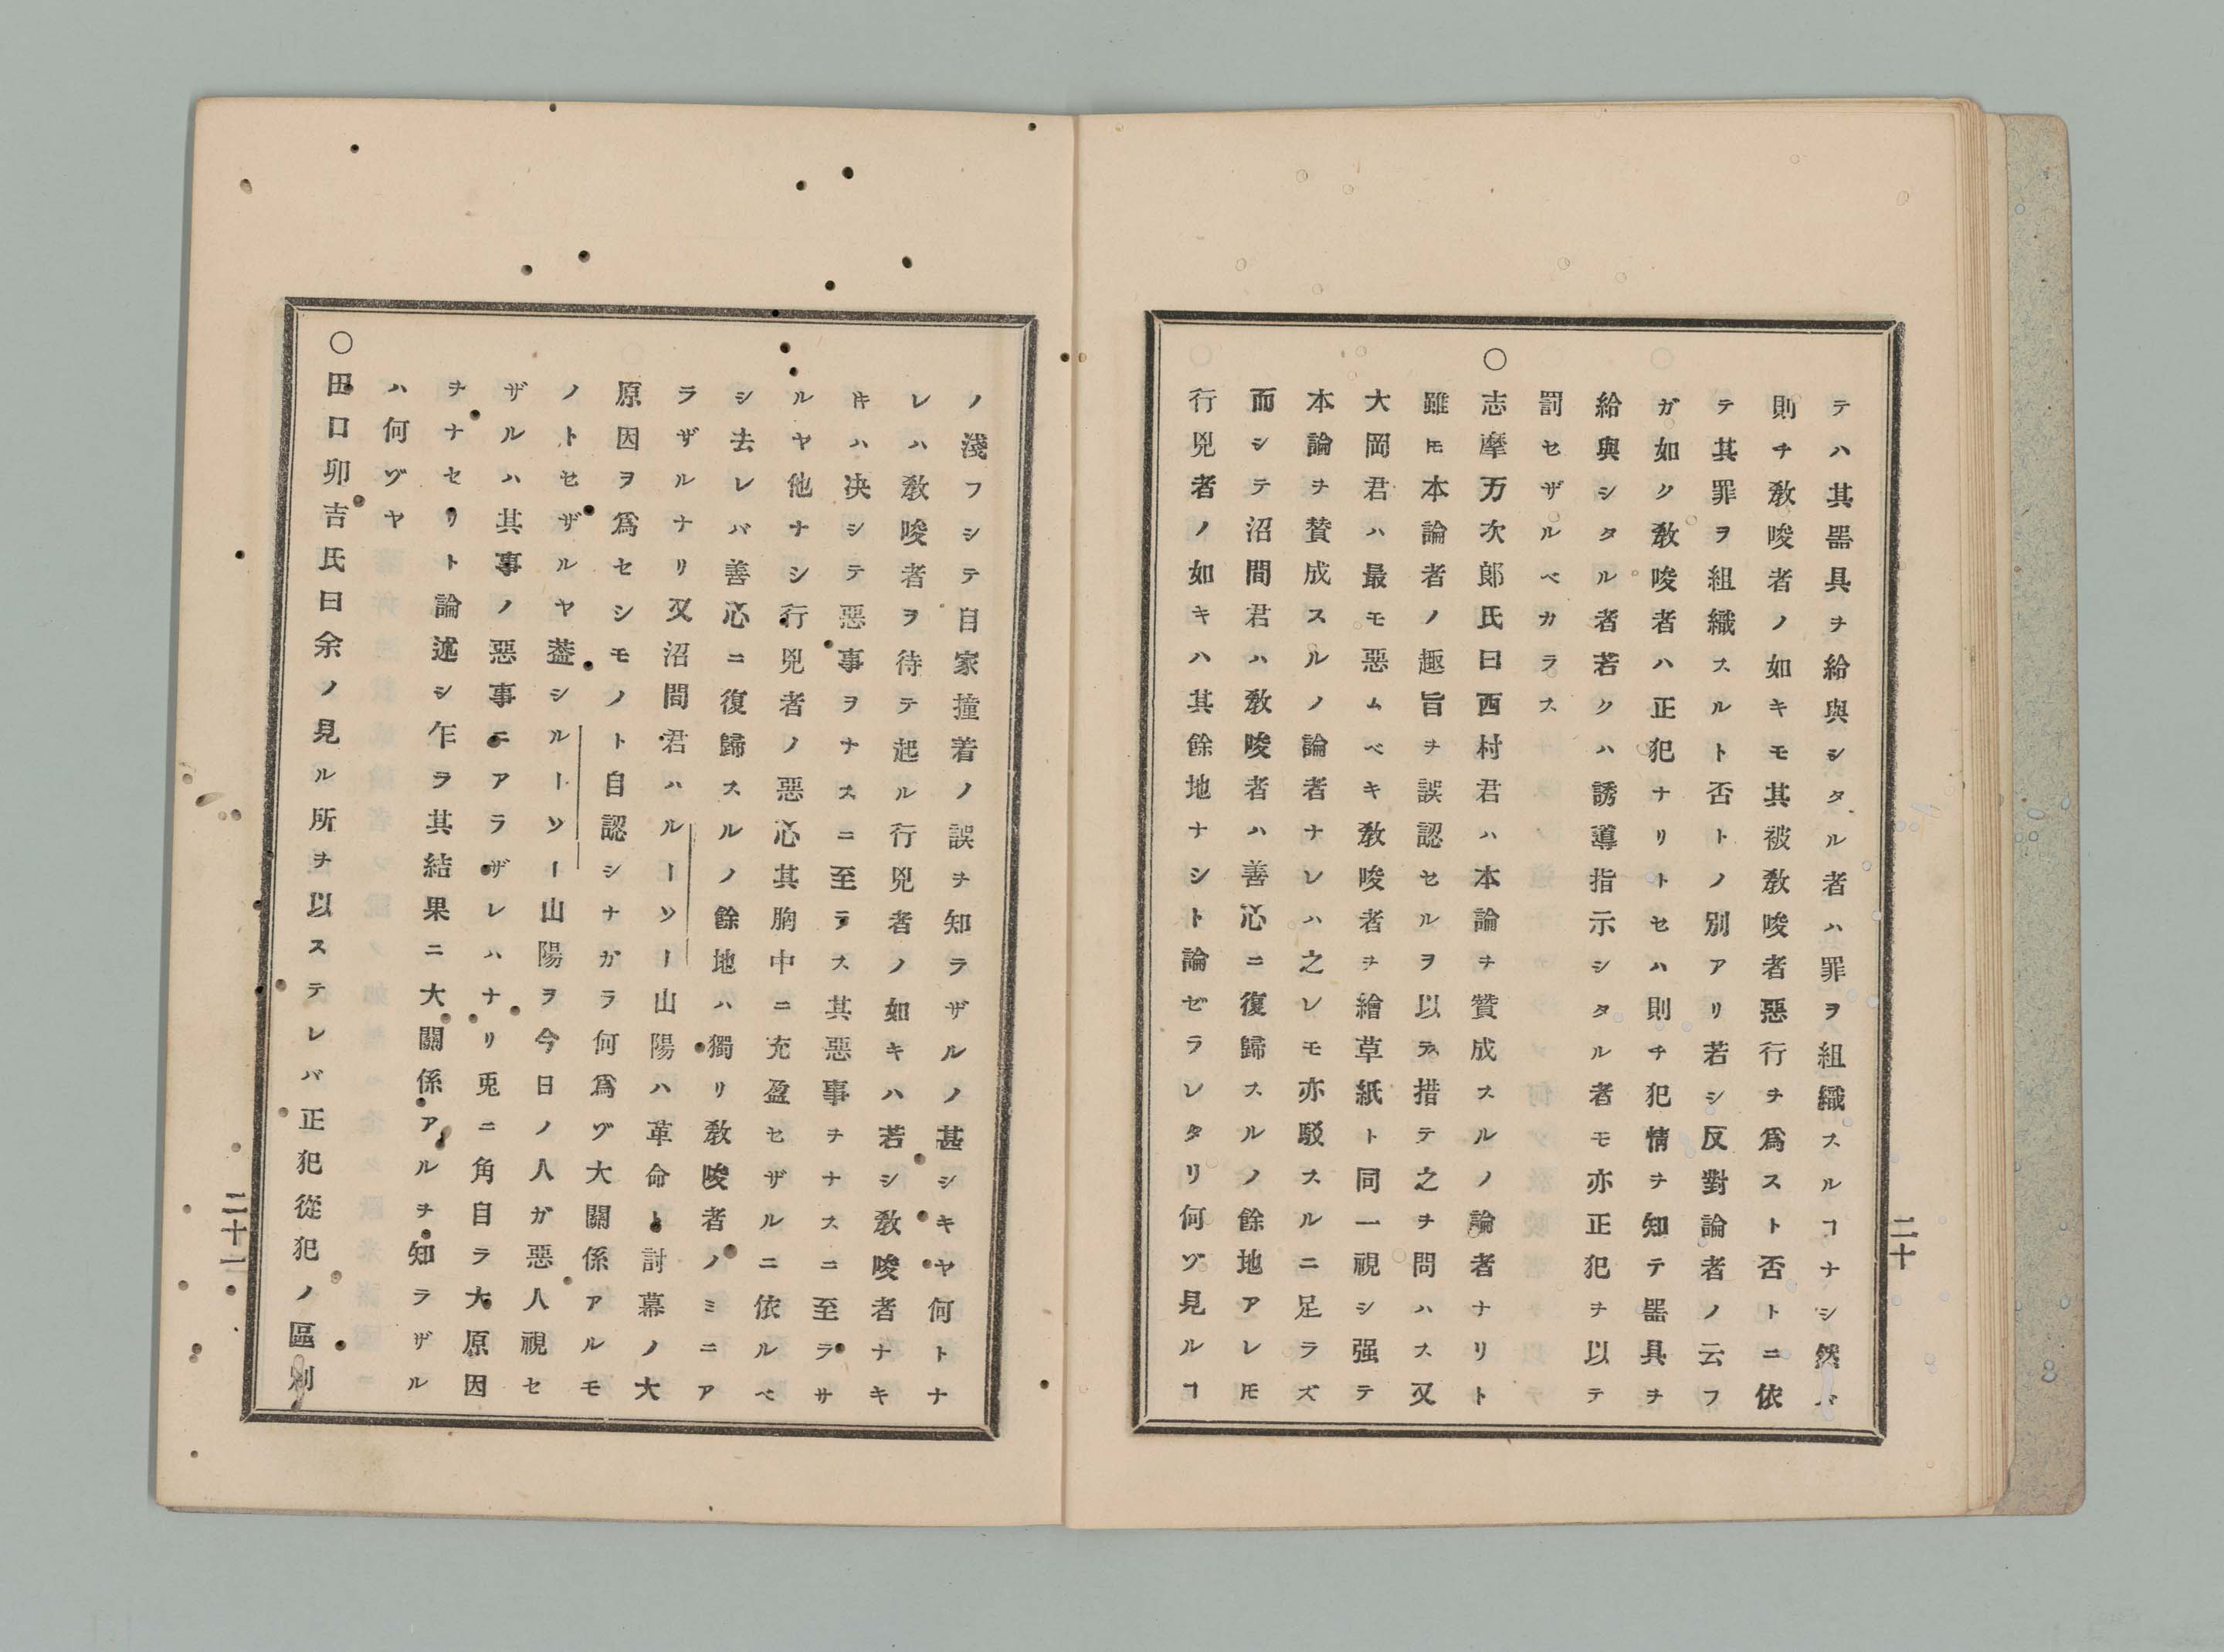 テハ其器具ヲ給與シタル者ハ罪ヲ組織スルヿナシ然バ
則チ教唆者ノ如キモ其被教唆者惡行ヲ爲スト否トニ依
テ其罪ヲ組織スルト否トノ別アリ若シ反對論者ノ云フ
ガ如ク教唆者ハ正犯ナリトセハ則チ犯情ヲ知テ器具ヲ
給與シタル者若クハ誘導指示シタル者モ亦正犯ヲ以テ
罰セザルベカラス
○志摩万次郎氏曰西村君ハ本論ヲ賛成スルノ論者ナリト
雖𪜈本論者ノ趣旨ヲ誤認セルヲ以テ措テ之ヲ問ハス又
大岡君ハ最モ惡ムベキ教唆者ヲ繪草紙ト同一視シ强テ
本論ヲ賛成スルノ論者ナレハ之レモ亦駁スルニ足ラズ
而シテ沼間君ハ教唆者ハ善心ニ復歸スルノ餘地アレ𪜈
行兇者ノ如キハ其餘地ナシト論ゼラレタリ何ゾ見ルヿ
二十
ノ淺フシテ自家撞着ノ誤ヲ知ラザルノ甚シキヤ何トナ
レハ教唆者ヲ待テ起ル行兇者ノ如キハ若シ教唆者ナキ
𪜈ハ决シテ惡事ヲナスニ至ラス其惡事ヲナスニ至ラサ
ルヤ他ナシ行兇者ノ惡心其胸中ニ充盈セザルニ依ルベ
シ去レバ善心ニ復歸スルノ餘地ハ獨リ教唆者ノミニア
ラザルナリ又沼間君ハルーソー山陽ハ革命ト討幕ノ大
原因ヲ爲セシモノト自認シナガラ何爲ゾ大關係アルモ
ノトセザルヤ葢シルーソー山陽ヲ今日ノ人ガ惡人視セ
ザルハ其事ノ惡事ニアラザレハナリ兎ニ角自ラ大原因
ヲナセリト論述シ乍ラ其結果ニ大關係アルヲ知ラザル
ハ何ゾヤ
○田口卯吉氏曰余ノ見ル所ヲ以ステレバ正犯從犯ノ區別
二十一